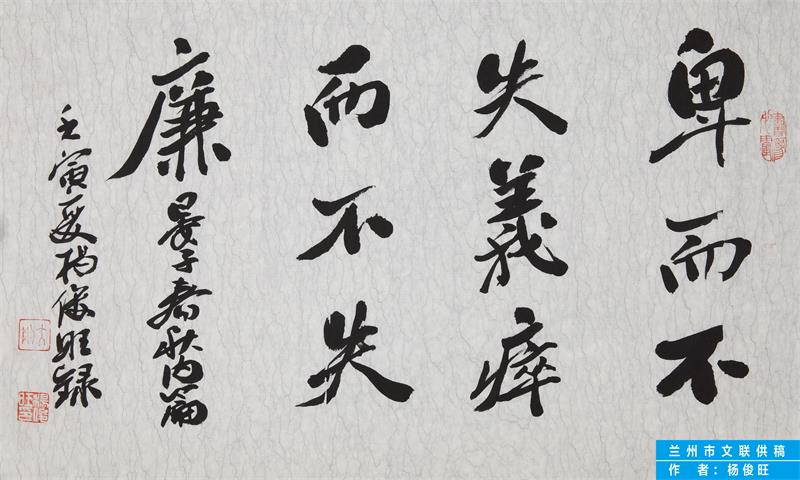 卑而不
失義瘁
而不失
廉 晏子春秋内篇
壬寅夏杨俊旺録
兰州市文联供稿
作 者:杨俊旺